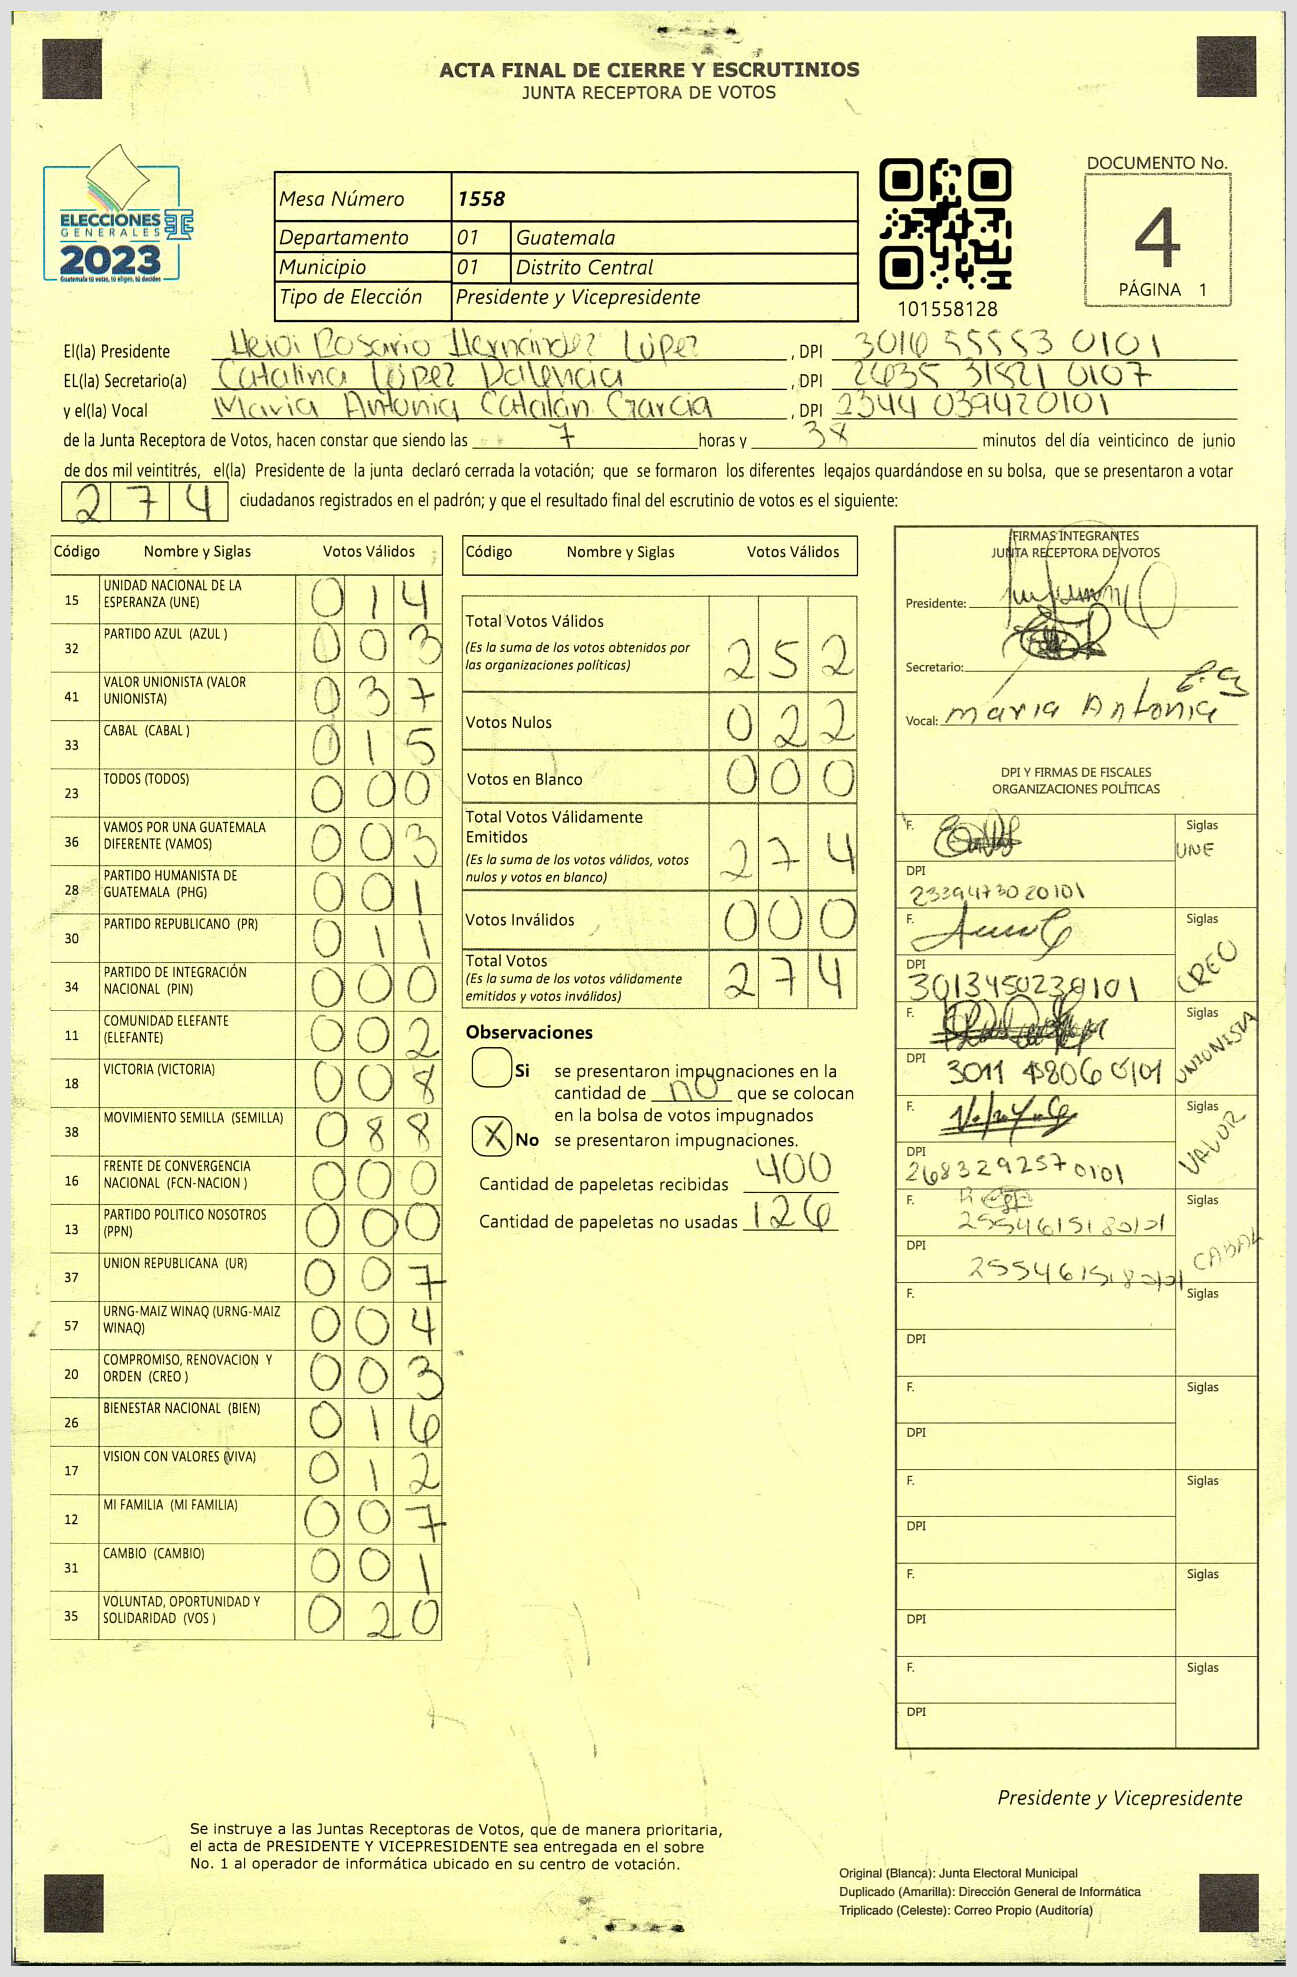 ACTA FINAL DE CIERRE Y ESCRUTINIOS
JUNTA RECEPTORA DE VOTOS
ELECCIONES
GENERALES
2023
Guatemala tú votas, tú eliges, tú decides
Mesa Número 1558
Departamento 01 Guatemala
Municipio 01 Distrito Central
Tipo de Elección Presidente y Vicepresidente
101558128
DOCUMENTO No.
4
PÁGINA 1
El(la) Presidente Heidi Rosario Hernández López, DPI 3016 55553 0101
EL(la) Secretario(a) Catalina López Valencia, DPI 2635 31521 0107
y el(la) Vocal Maria Antonia Catalán Garcia, DPI 2344 039420101
de la Junta Receptora de Votos, hacen constar que siendo las 7 horas y 38 minutos del día veinticinco de junio
de dos mil veintitrés, el(la) Presidente de la junta declaró cerrada la votación; que se formaron los diferentes legajos guardándose en su bolsa, que se presentaron a votar
274 ciudadanos registrados en el padrón; y que el resultado final del escrutinio de votos es el siguiente:
Código Nombre y Siglas Votos Válidos
15 UNIDAD NACIONAL DE LA ESPERANZA (UNE) 014
32 PARTIDO AZUL (AZUL ) 003
41 VALOR UNIONISTA (VALOR UNIONISTA) 037
33 CABAL (CABAL ) 015
23 TODOS (TODOS) 000
36 VAMOS POR UNA GUATEMALA DIFERENTE (VAMOS) 003
28 PARTIDO HUMANISTA DE GUATEMALA (PHG) 001
30 PARTIDO REPUBLICANO (PR) 011
34 PARTIDO DE INTEGRACIÓN NACIONAL (PIN) 000
11 COMUNIDAD ELEFANTE (ELEFANTE) 002
18 VICTORIA (VICTORIA) 008
38 MOVIMIENTO SEMILLA (SEMILLA) 088
16 FRENTE DE CONVERGENCIA NACIONAL (FCN-NACION ) 000
13 PARTIDO POLITICO NOSOTROS (PPN) 000
37 UNION REPUBLICANA (UR) 007
57 URNG-MAIZ WINAQ (URNG-MAIZ WINAQ) 004
20 COMPROMISO, RENOVACION Y ORDEN (CREO ) 003
26 BIENESTAR NACIONAL (BIEN) 016
17 VISION CON VALORES (VIVA) 012
12 MI FAMILIA (MI FAMILIA) 007
31 CAMBIO (CAMBIO) 001
35 VOLUNTAD, OPORTUNIDAD Y SOLIDARIDAD (VOS ) 020
Código Nombre y Siglas Votos Válidos
Total Votos Válidos 252
(Es la suma de los votos obtenidos por
las organizaciones políticas)
Votos Nulos 022
Votos en Blanco 000
Total Votos Válidamente
Emitidos 274
(Es la suma de los votos válidos, votos
nulos y votos en blanco)
Votos Inválidos 000
Total Votos 274
(Es la suma de los votos válidamente
emitidos y votos inválidos)
Observaciones
Si se presentaron impugnaciones en la
cantidad de no que se colocan
en la bolsa de votos impugnados
X No se presentaron impugnaciones.
Cantidad de papeletas recibidas 400
Cantidad de papeletas no usadas 126
FIRMAS INTEGRANTES
JUNTA RECEPTORA DE VOTOS
Presidente:
Secretario:
Vocal: Maria Antonia
DPI Y FIRMAS DE FISCALES
ORGANIZACIONES POLÍTICAS
F. Siglas
UNE
DPI
2339473020101
F. Siglas
CREO
DPI
3013450230101
F. Siglas
UNIONISTA
DPI 3011 45806 0101
F. Siglas
VALOR
DPI
268329257 0101
F. Siglas
2554615180101
CABAL
DPI
2554615180101
F. Siglas
DPI
F. Siglas
DPI
F. Siglas
DPI
F. Siglas
DPI
F. Siglas
DPI
Presidente y Vicepresidente
Se instruye a las Juntas Receptoras de Votos, que de manera prioritaria,
el acta de PRESIDENTE Y VICEPRESIDENTE sea entregada en el sobre
No. 1 al operador de informática ubicado en su centro de votación.
Original (Blanca): Junta Electoral Municipal
Duplicado (Amarilla): Dirección General de Informática
Triplicado (Celeste): Correo Propio (Auditoría)